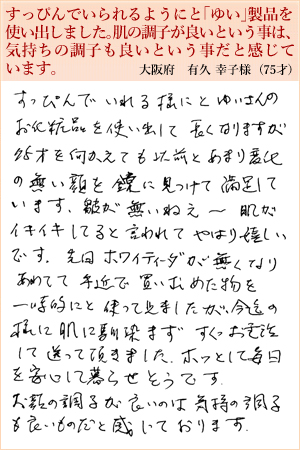 すっぴんでいられるようにと「ゆい」製品を
使い出しました。肌の調子が良いという事は、
気持ちの調子も良いという事だと感じて
います。
大阪府 有久 幸子様 (75才)
すっぴんで いれる 様にと ゆいさんの
お化粧品を使い出して 長くなりますが
75才を何かえても 以前とあまり変化
の無い顔を鏡に見つけて 満足して
います。皺が無いねえ〜 肌が
イキイキしてると言われて やはり嬉しい
です。先日 ホワイティーダが無くなり
あわてて 手近で 買い求めた物を
一時的にと 使って見ましたが、今迄の
様に肌に馴染まず すぐお電話
して 送って頂きました。ホッとして毎日
を安心して暮らせそうです。
お顔の調子が良いのは 気持の調子
も良いものだと感じております。